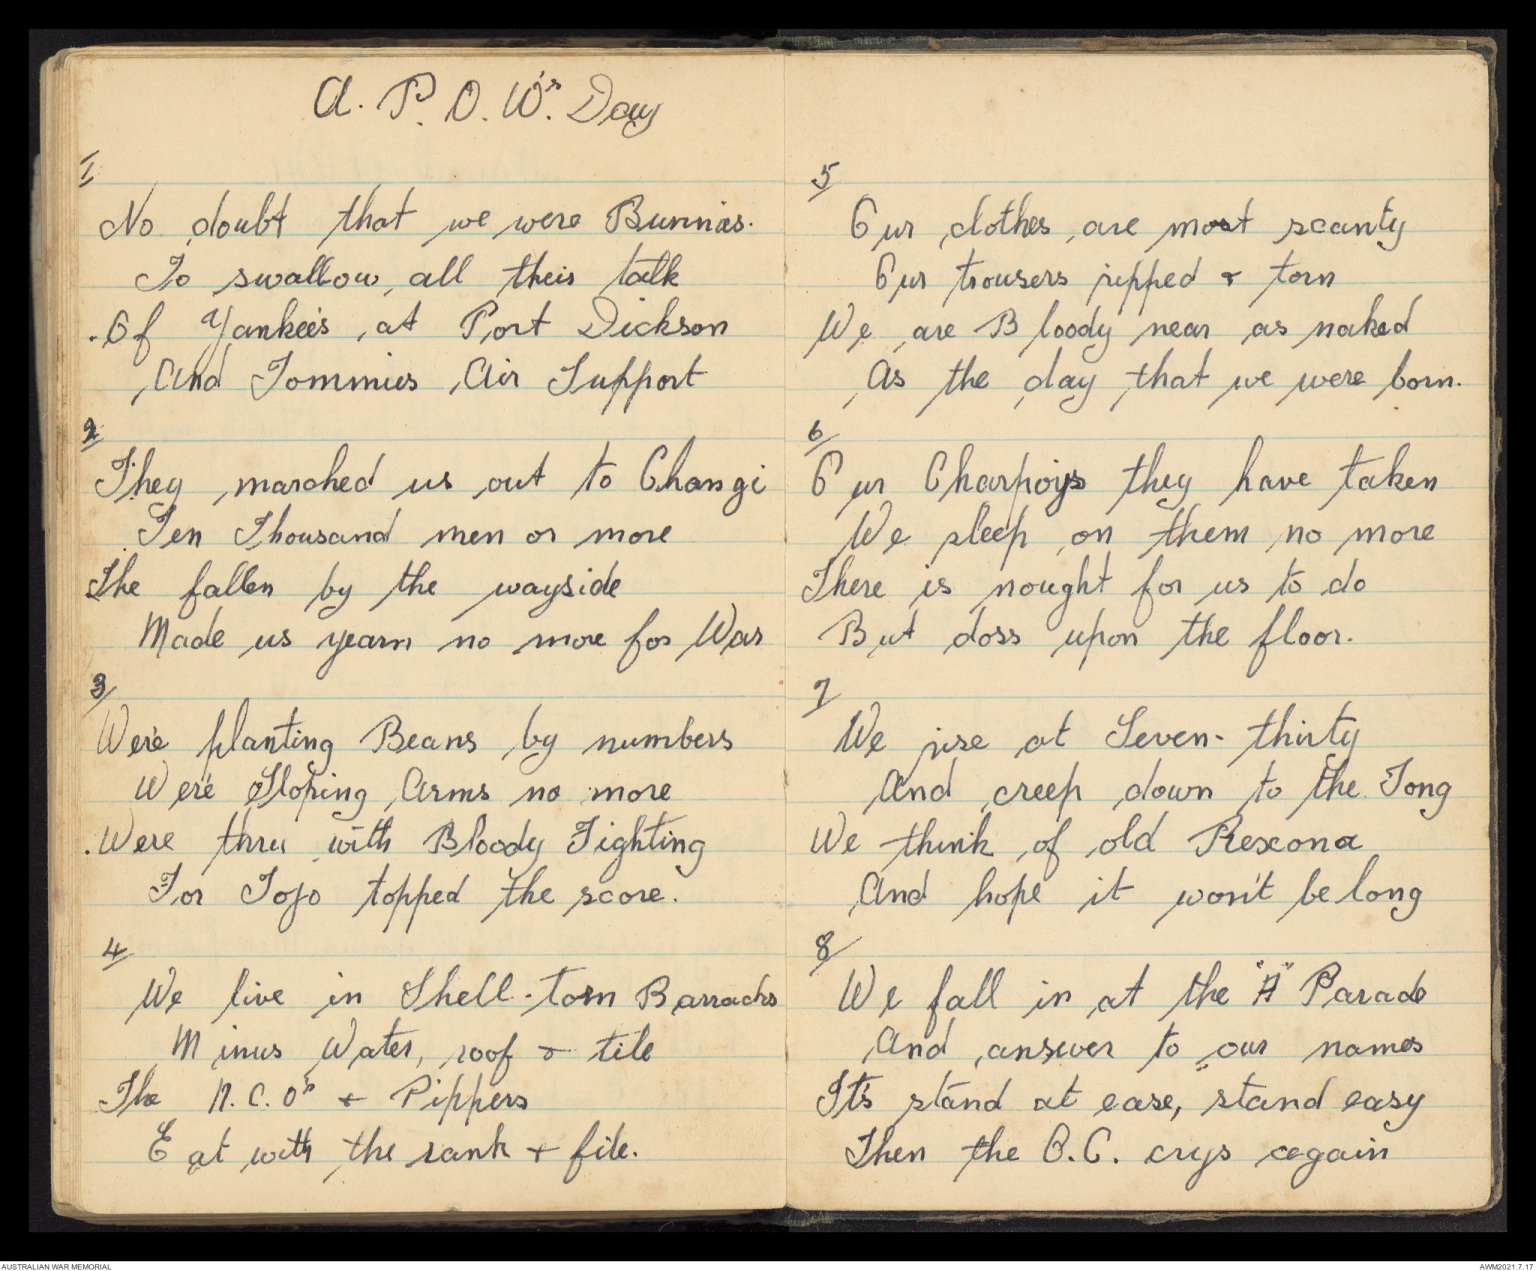 A. P. O. W's. Day
1
No doubt that we were Bunnies.
To swallow all their talk
Of Yankee's at Port Dickson
And Tommies Air Support
2
They marched us out to Changi
Ten Thousand men or more
The fallen by the wayside
Made us yearn no more for War
3
We're planting Beans by numbers
We're Sloping Arms no more
Were thru with Bloody Fighting
For Tojo topped the score.
4
We live in Shell-torn Barracks
Minus Water, roof & tile
The N.C.O's & Pippers
Eat with the rank & file.
5
Our clothes are most scanty
Our trousers ripped & torn
We are Bloody near as naked
As the day that we were born.
6
Our Charpoys they have taken
We sleep on them no more
There is nought for us to do
But doss upon the floor.
7
We rise at Seven-thirty
And creep down to the Tong
We think of old Rexona
And hope it won't be long
8
We fall in at the "A" Parade
And answer to our names
It's stand at ease, stand easy
Then the O.C. crys again
AUSTRALIAN WAR MEMORIAL
AWM2021.7.17